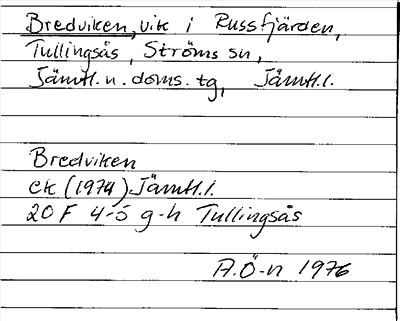 Bredviken, vik i Russfjärden,
Tullingsås, Ströms sn,
Jämtl. n. doms. tg, Jämtl.l.
Bredviken
ek (1974) Jämtl.l.
20 F 4-5 g-h Tullingsås
A.Ö-n 1976